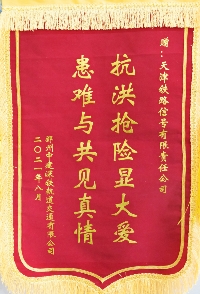 赠：天津铁路信号有限责任公司
抗洪抢险显大爱
患难与共见真情
郑州中建深铁轨道交通有限公司
二〇二一年八月